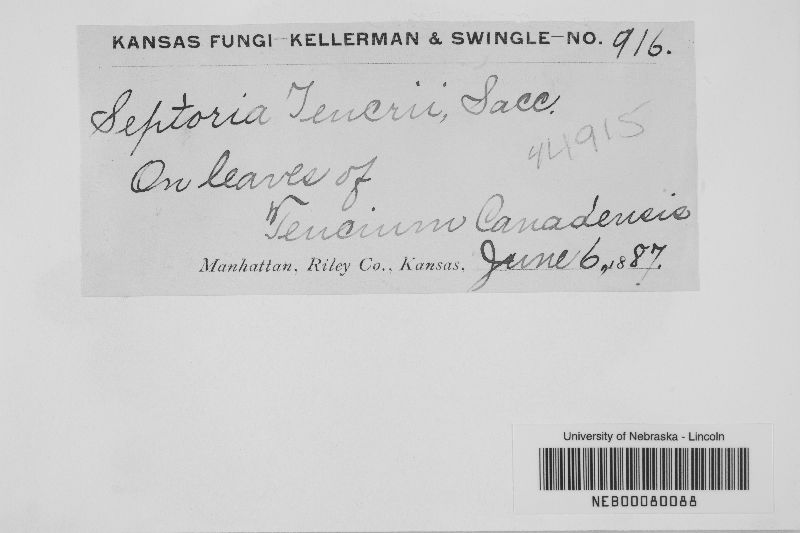 KANSAS FUNGI—KELLERMAN & SWINGLE—NO. 916.
Septoria Teucrii, Sacc.
44915
On leaves of
Teucrium Canadensis
Manhattan, Riley Co., Kansas, June 6, 1887.
University of Nebraska - Lincoln
NEB00080088